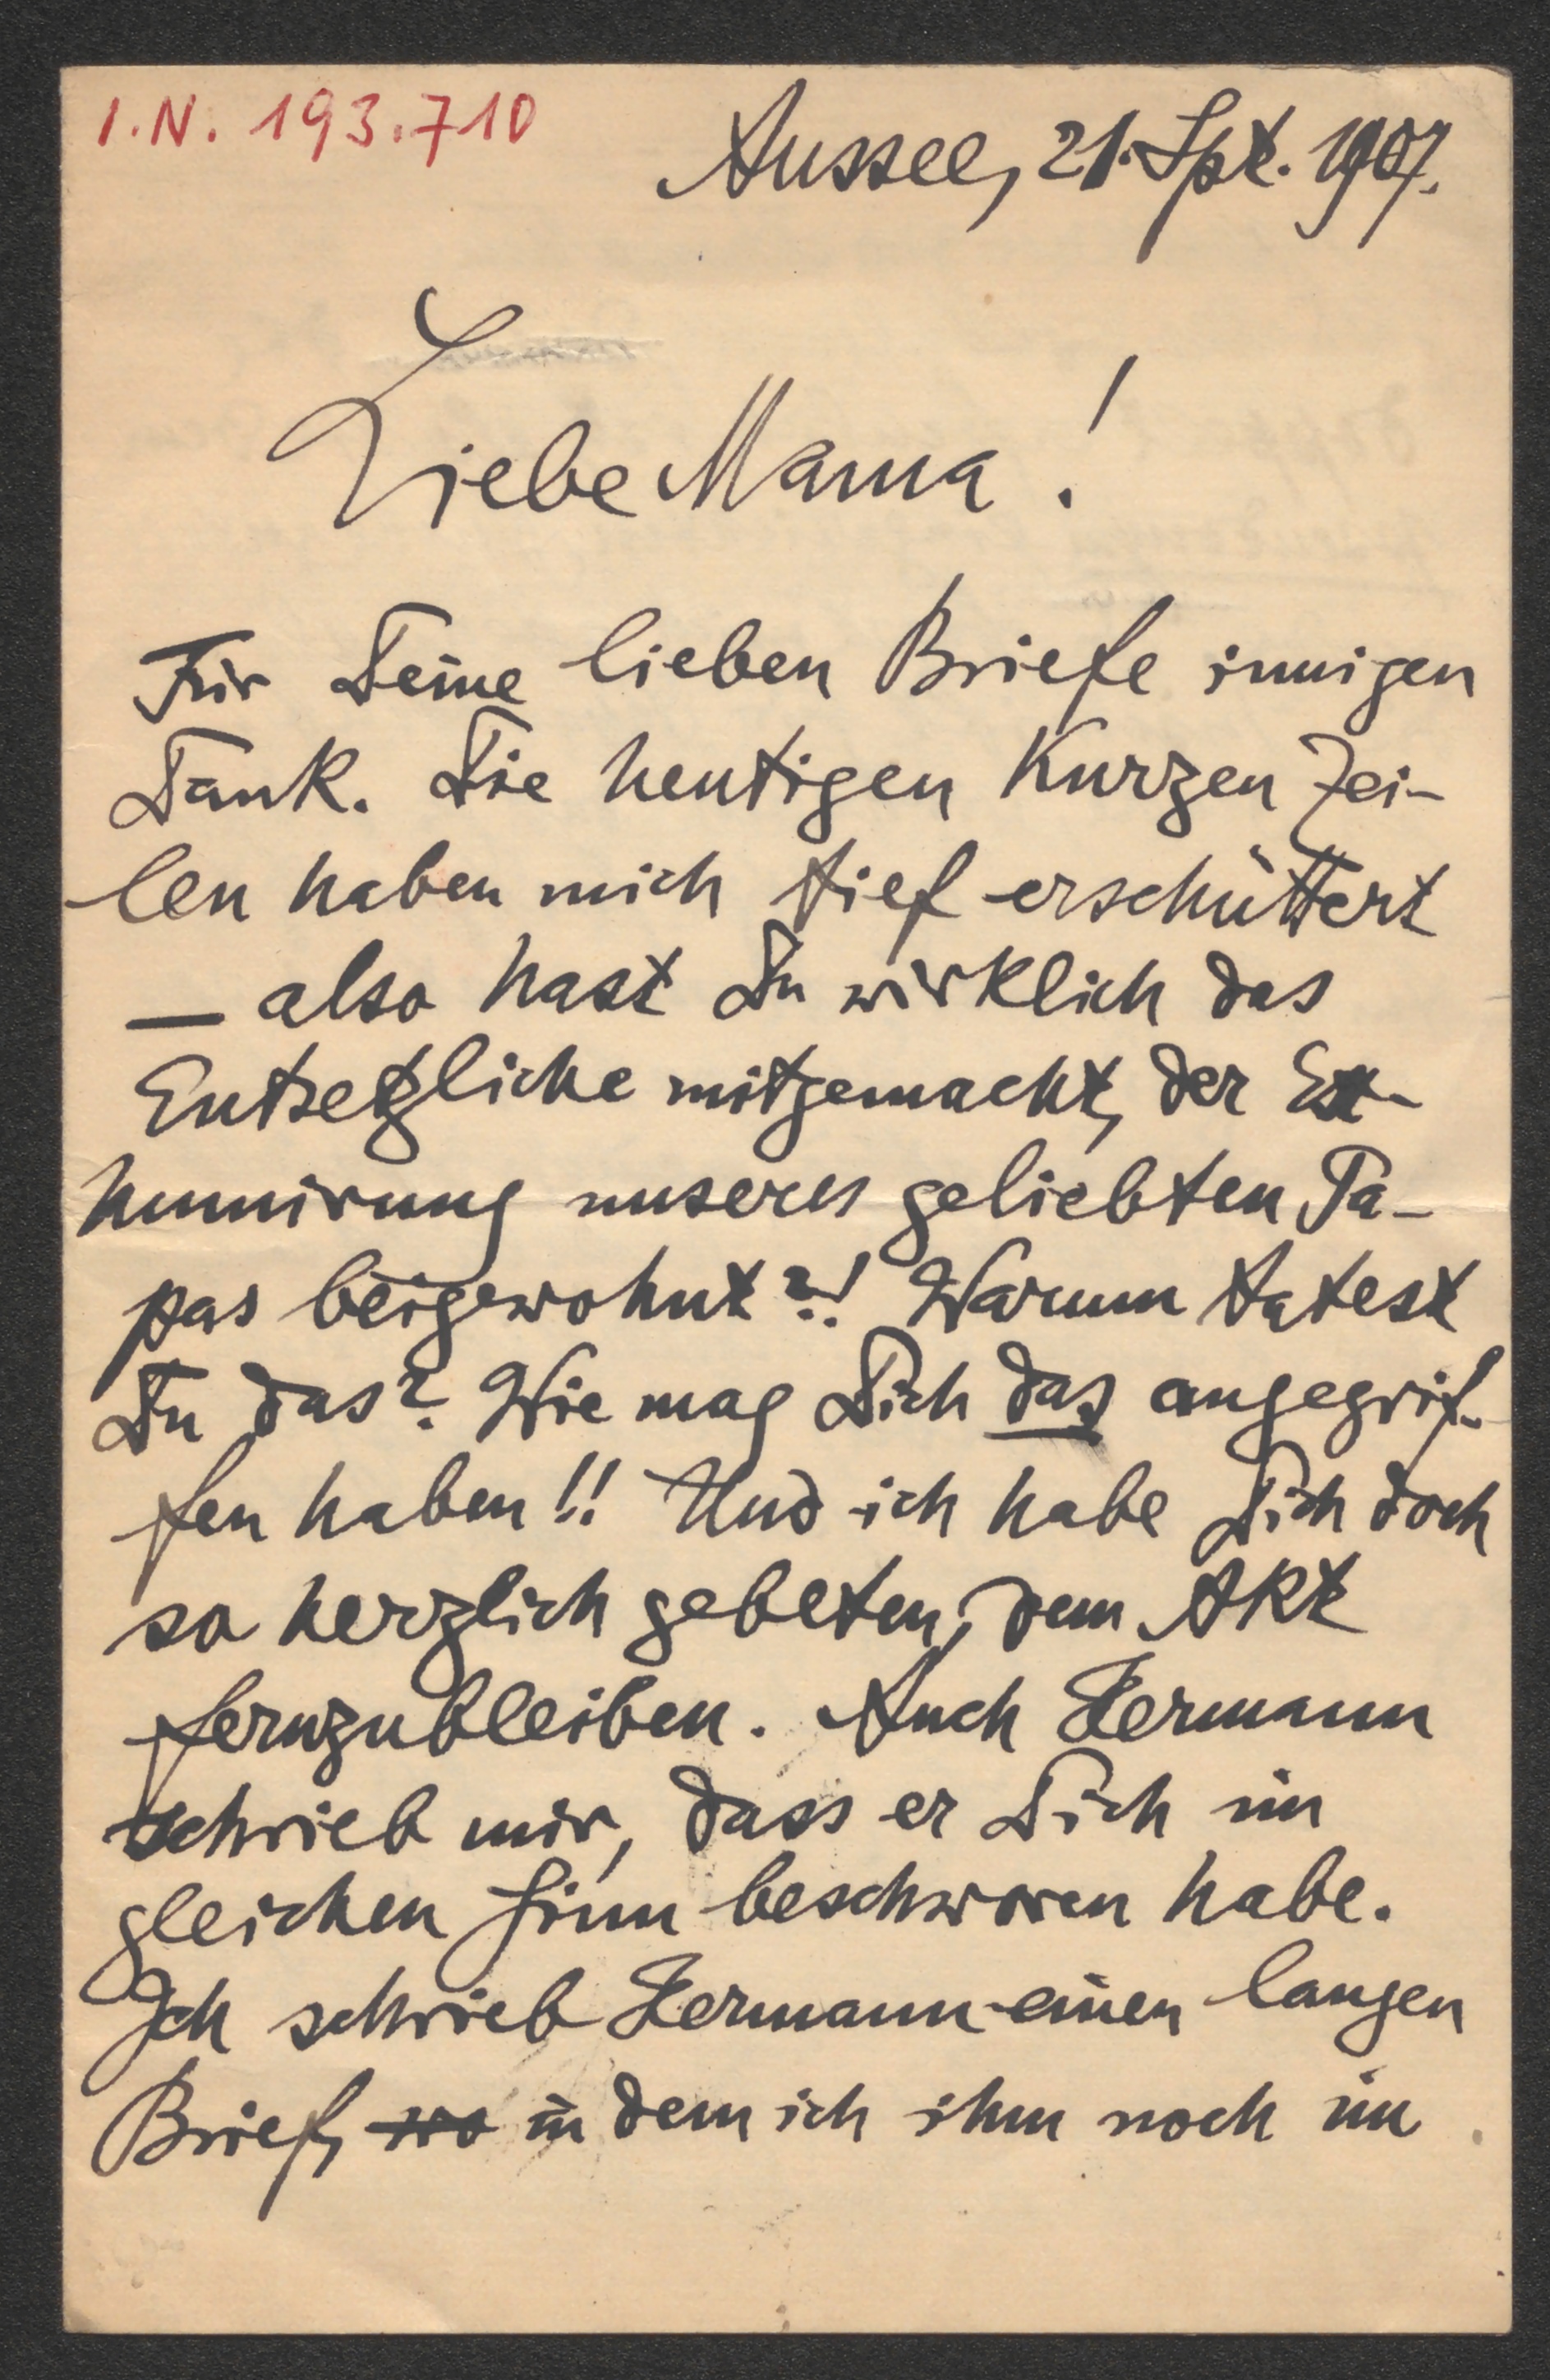 I.N. 193.710
Aussee, 21. Spt. 1907.
Liebe Mama!
Für Deine lieben Briefe innigen
Dank. Die heutigen Kurzen Zei-
len haben mich tief erschüttert
— also hast Du wirklich das
Entsetzliche mitgemacht, der Ex-
humirung unseres geliebten Pa-
pas beigewohnt?! Warum tatest
Du das? Wie mag Dich das angegrif-
fen haben!! Und ich habe Dich doch
so herzlich gebeten, dem Akt
fernzubleiben. Auch Hermann
schrieb mir, dass er Dich im
gleichen Sinn beschworen habe.
Ich schrieb Hermann einen langen
Brief, wo in dem ich ihm noch im